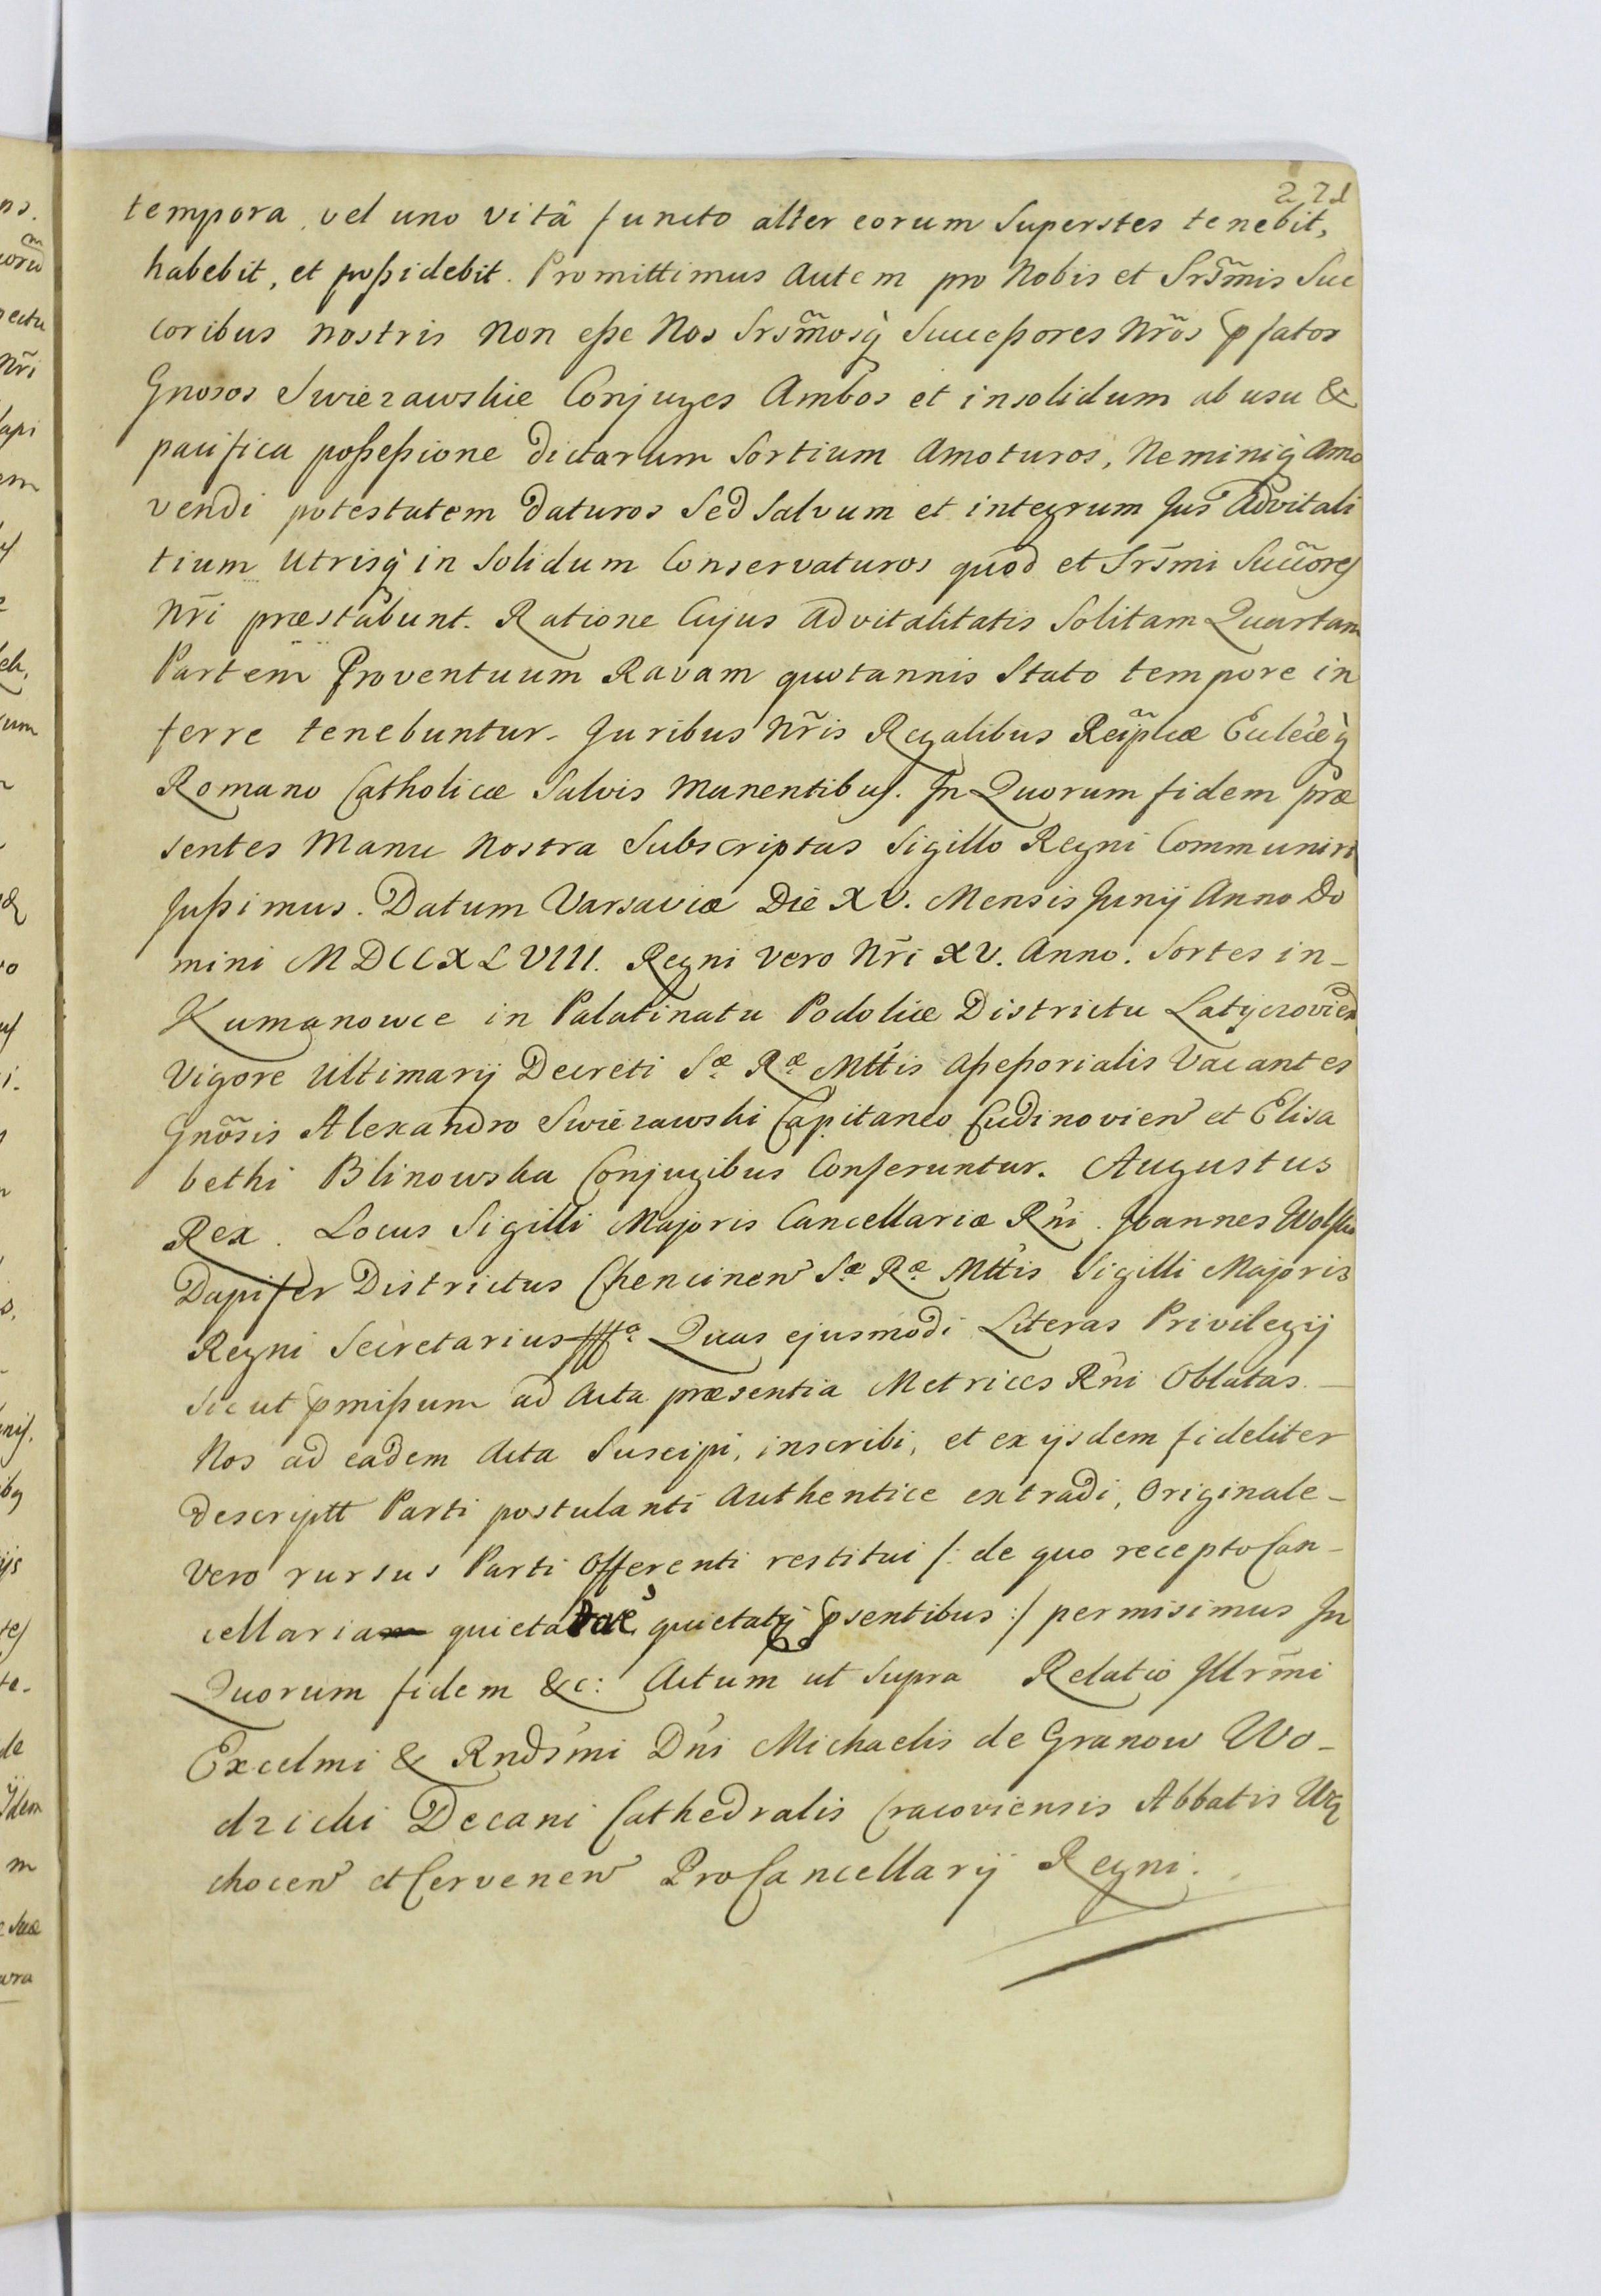 271
tempora, vel uno vitâ functo alter eorum Superstes tenebit,
habebit, et poßidebit. Promittimus Autem pro Nobis et Srs̃mis Suc
coribus nostris Non eße Nos Srs̃mosq̀ Succeßores Nr̃os p̱fatos
Gnosos Swiezawskie Conjuges Ambos et insolidum ab usu &
pacifica poßeßione dictarum Sortium Amoturos, Neminiq̀ Amo
vendi potestatem daturos Sed Salvum et integrum Jus Advitali
tium Utrisq̀ in Solidum Conservaturos quod et Srs̃mi Succ̃ores
Nr̃i præstabunt. Ratione Cujus Advitalitatis Solitam Quartam
Partem Proventuum Ravam quotannis Stato tempore in
ferre tenebuntur. Juribus Nr̃is Regalibus Reip̃licæ Eccleæq̀
Romano Catholicæ Salvis Manentibus. In Quorum fidem præ
sentes Manu Nostra Subscriptas Sigillo Regni Communiri
Jußimus. Datum Varsaviæ Die XV. Mensis Junij Anno Do
mini MDCCXLVIII. Regni Vero Nr̃i XV. Anno. Sortes in-
Kumanowce in Palatinatu Podoliæ Districtu Latyczovien
Vigore Ultimarij Decreti Sæ Ræ Mttis Aßeßorialis Vacantes
Gnõsis Alexandro Swiezawski Capitaneo Cudinovien et Elisa
bethi Blinowska Conjugibus Conferuntur. Augustus
Rex. Locus Sigilli Majoris Cancellariæ Rńi. Joannes Wolski
Dapifer Districtus Chencinen Sæ Ræ Mttis Sigilli Majoris
Regni Secretarius Quas ejusmodi Literas Privilegij
Sicut p̱mißum ad Acta præsentia Metrices Rńi Oblatas.
Nos ad eadem Acta Suscipi, inscribi, et ex ijsdem fideliter
descriptt Parti postulanti Authentice extradi, Originale-
Vero rursus Parti Offerenti restitui /: de quo recepto Can-
cellaria quietatæ quietatq̀ p̱sentibus :/ permisimus In
Quorum fidem &c: Actum ut Supra Relatio Jllr̃mi
Excelmi & Rndśmi Dńi Michaelis de Granow Wo-
dzicki Decani Cathedralis Cracoviensis Abbatis Wą
chocen et Cervenen ProCancellarij Regni.